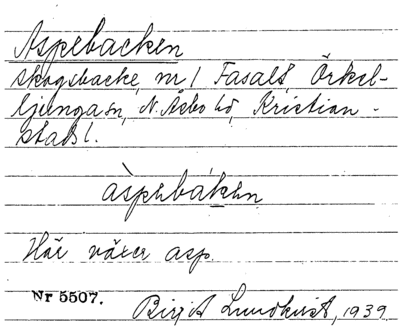 Aspebacken
skogsbacke, m / Fasalt, Örkel-
ljunga sn, N. Åsbo hd, Kristian-
stads l.
àspəbákən
Här växer asp.
Nr 5507.
Birgit Lundkvist, 1939